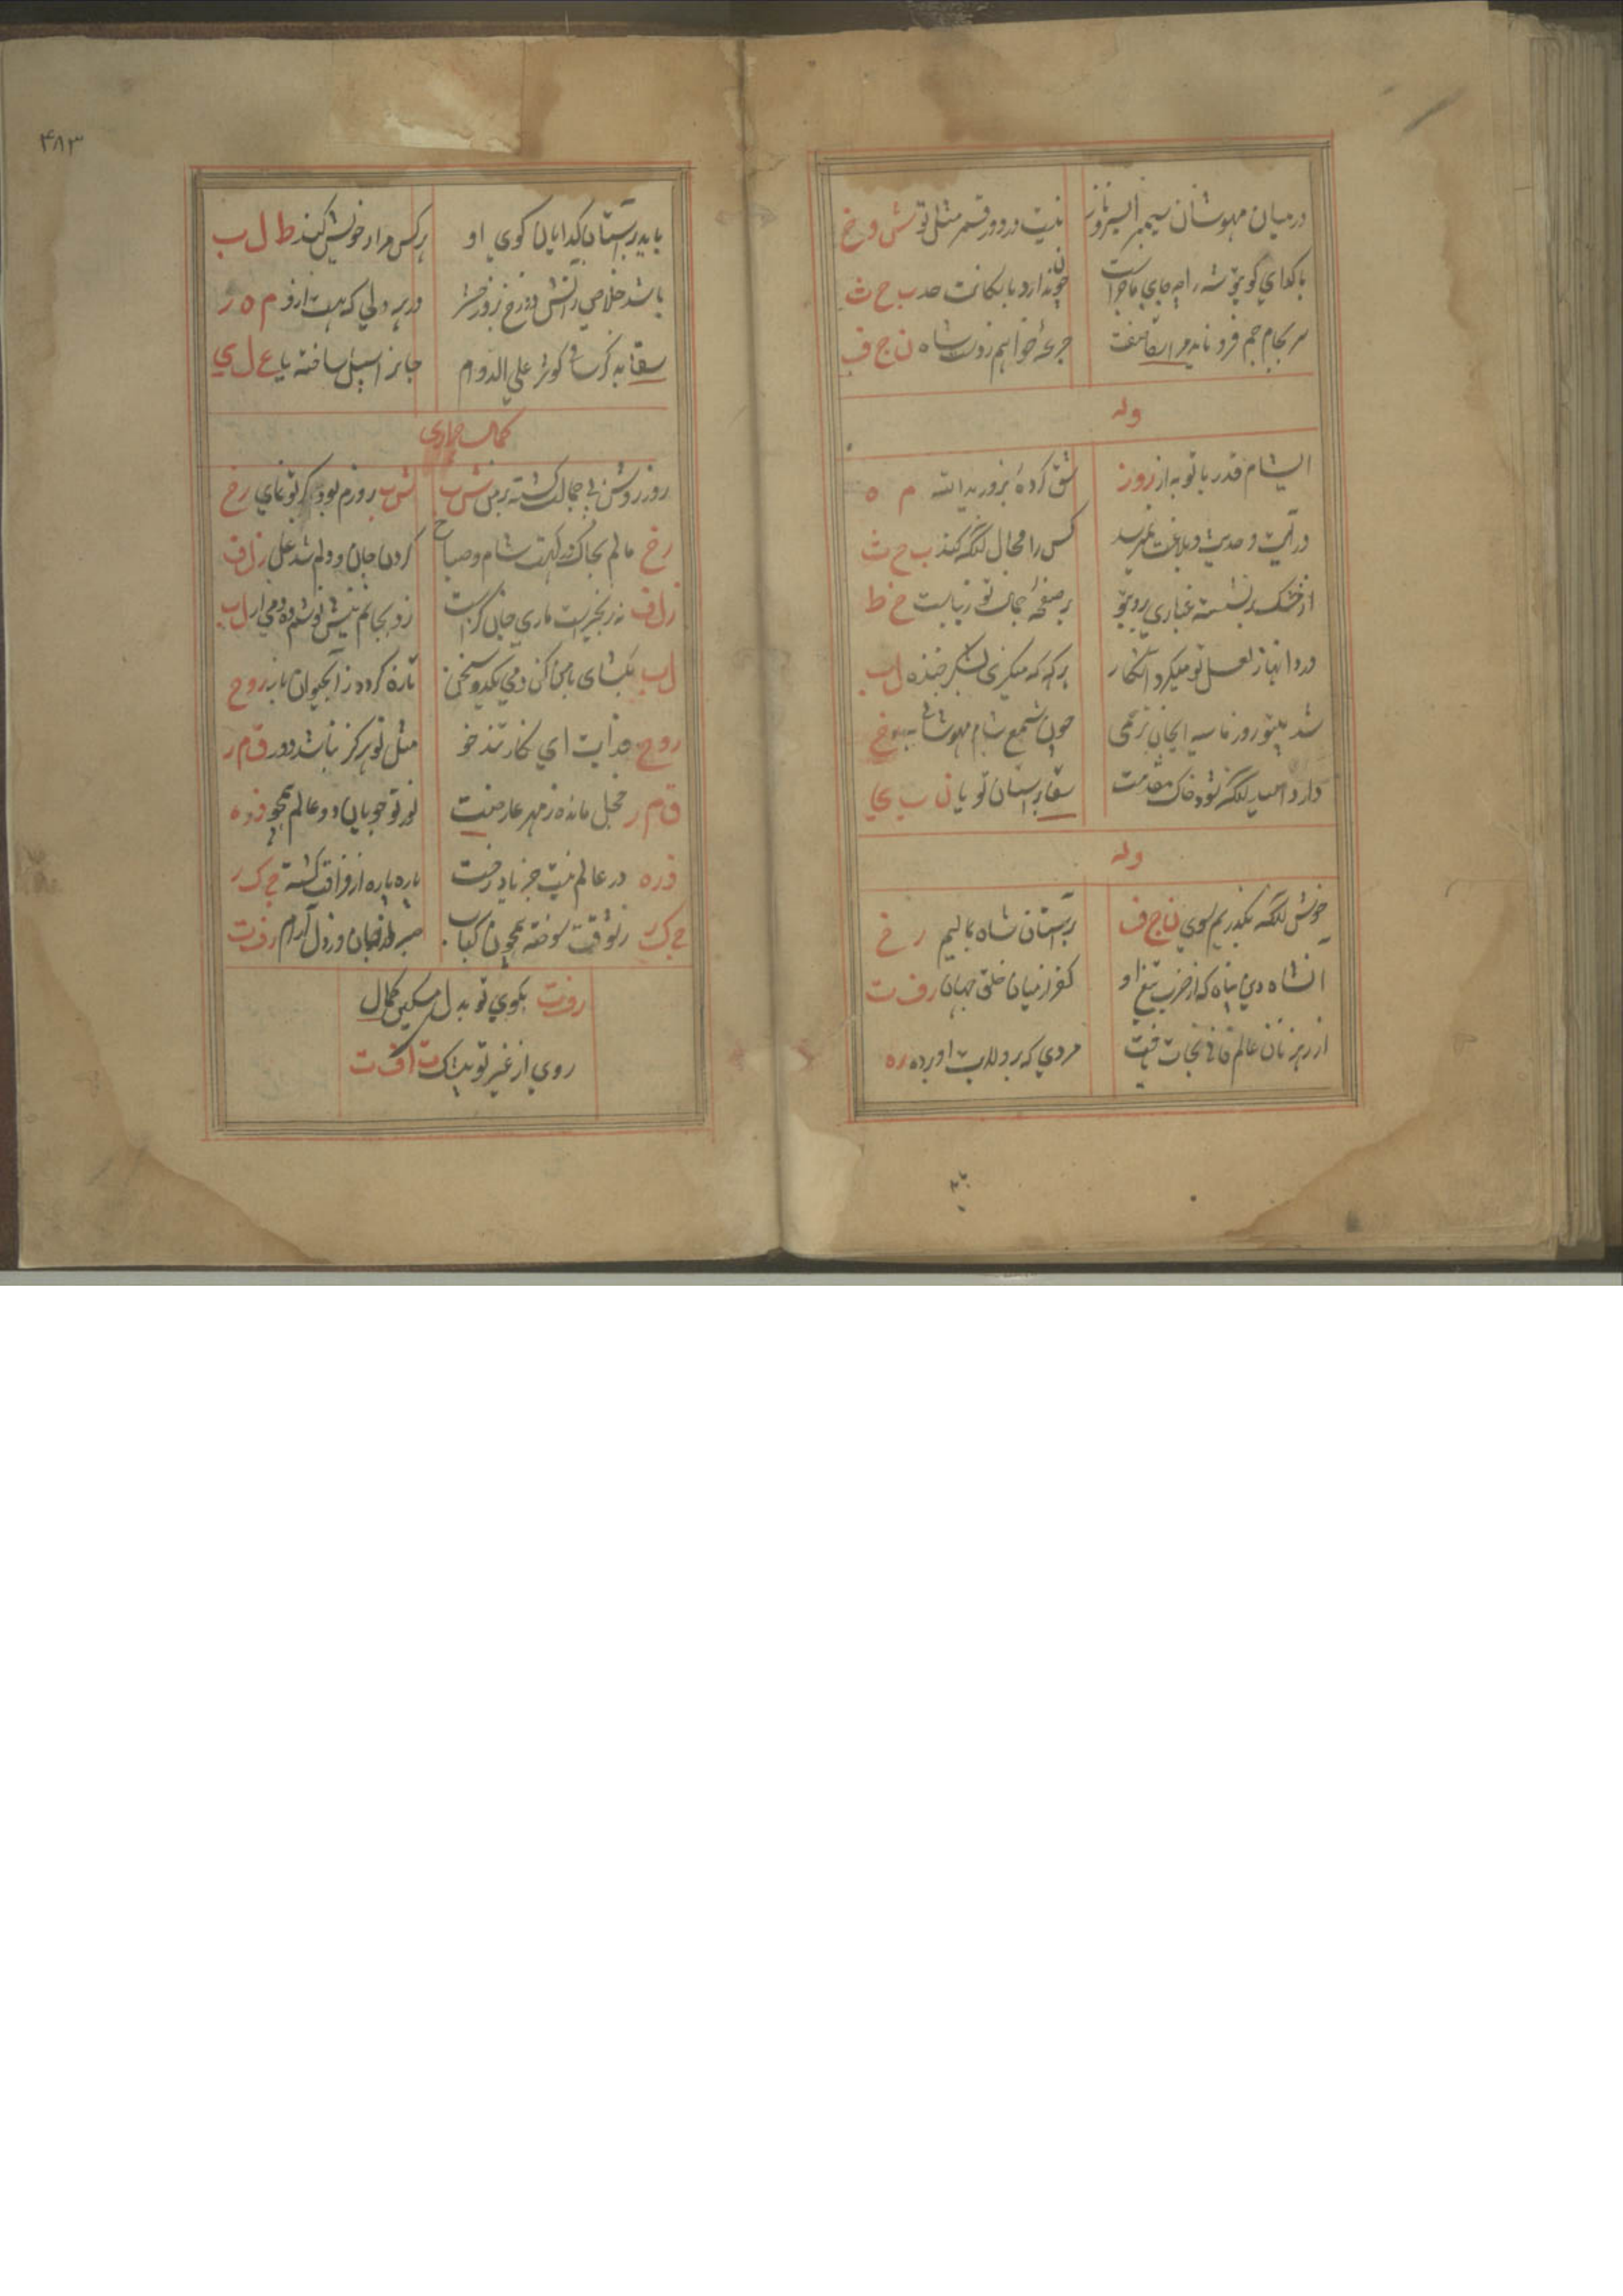 در میان مهوشان سیمبر ای سرو ناز
نیست در دور قمر مثل تو ش و خ
با کدای کوی تو شه را چه جای ماجراست
چون ندارد با سکانت حد ب ح ث
سر بجام جم فرو ناید مرا سقا صفت
جرعهٔ خواهیم زدست شاه ن ج ف
وله
ای شام قدر با تو به از روز
شق کردهٔ بزور ید الله م ه
در آیت و حدیث و بلاغت نمیرسد
کس را مجال آنکه کند ب ح ث
از خشک بنشسته غباری بروی تو
بر صفحهٔ جمال تو زیباست خ ط
در دانها ز لعل تو میکردد آشکار
هرکه که میکزی بشکر خنده ل ب
شد بیتو روز ما سیه ایجان ترحمی
چون شمع شام مهوشانی
دارد امید آنکه شود خاک مقدمت
سقا بر استان تو یا ن ب ی
وله
خوش آنکه بکذریم بسوی ن ج ف
بر آستان شاه بمالیم ر خ
آنشاه دین پناه که از ضرب تیغ او
کفر از میان خلق جهان ر ف ت
از رهزنان عالم فانی نجات یافت
مردی که رو بدان آورده ره
۴۸۳
باید بر آستان کدایان کوی او
هر کس مراد خویش کند ط ل ب
باشد خلاص ز آتش دوزخ بروز حشر
در هر دلی که هست ازو م ه ر
سقا به کرسا کوثر علی الدوام
جانرا سبیل ساخته یا ع ل ی
کمال
روز روشن بی جمالت کشته بر من ش ب
ش ب روزم بود کر تو نمای رخ
رخ مالم بخاک در کهت شام و صباح
کردن جان و دلم شد علی زلف
زلف نه زنجیریست ماری جان کزاست
زد بجانم نیش نوشم ده دمی از ل ب
ل ب بکشای با من کن دمی یکدو سخن
تازه کردد ز آبحیوان باز روح
روح فدایت ای نکار تند خو
مثل تو هرکز نباشد دور ق م ر
ق م ر خجل مانده ز مهر عارضت
نور تو جویان دو عالم همچو ذره
ذره در عالم نیست جز یاد رخت
پاره پاره از فراقت کشته ج ک ر
ج ک ر ز شوقت سوخته همچون کباب
صبر از جان و ز دل آرام رفت
رفت بکوی تو بدل مسکین کمال
روی از غیر تو بیشک ت ا ف ت